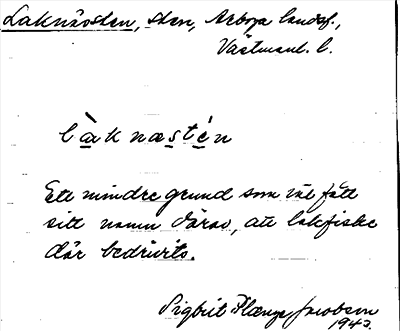 Laknästen, sten, Arboga landsf.,
Västmanl. l.
làknasten
Ett mindre grund som väl fått
sitt namn därav, att lakfiske
där bedrivits.
Sigbrit Plænge Jacobson
1943.